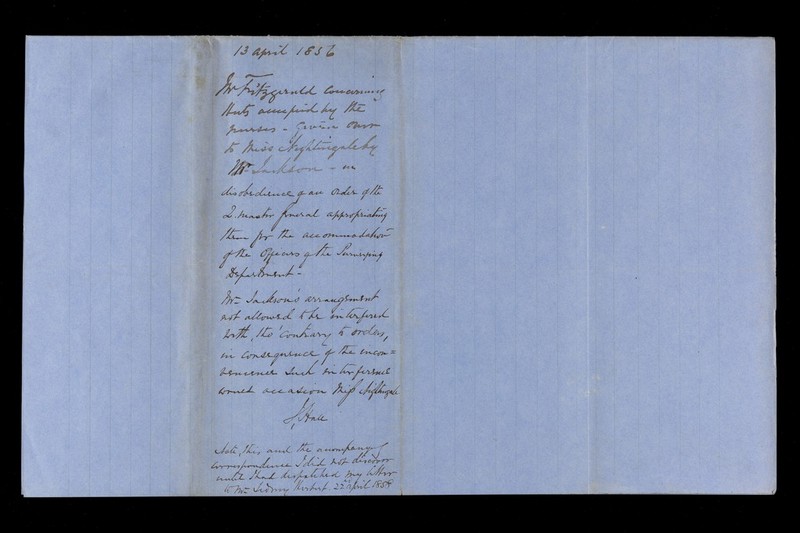 13 April 1856
Mr Fitzgerald concerning
Huts occupied by the
nurses - given over
to Miss Nightingale by
Mr Jackson - in
disobedience of an order of the
Q. Master General appropriating
them for the accommodation
of the Officers of the Purveying
Department -
Mr Jackson's arrangement
not allowed to be interfered
with, tho' contrary to orders,
in consequence of the incon=
venience such interference
would occasion Miss Nightingale
J. Hall
Note, this and the accompany
correspondence I did not discover
until I had dispatched my letter
to Mr Sidney Herbert. 2d April 1858